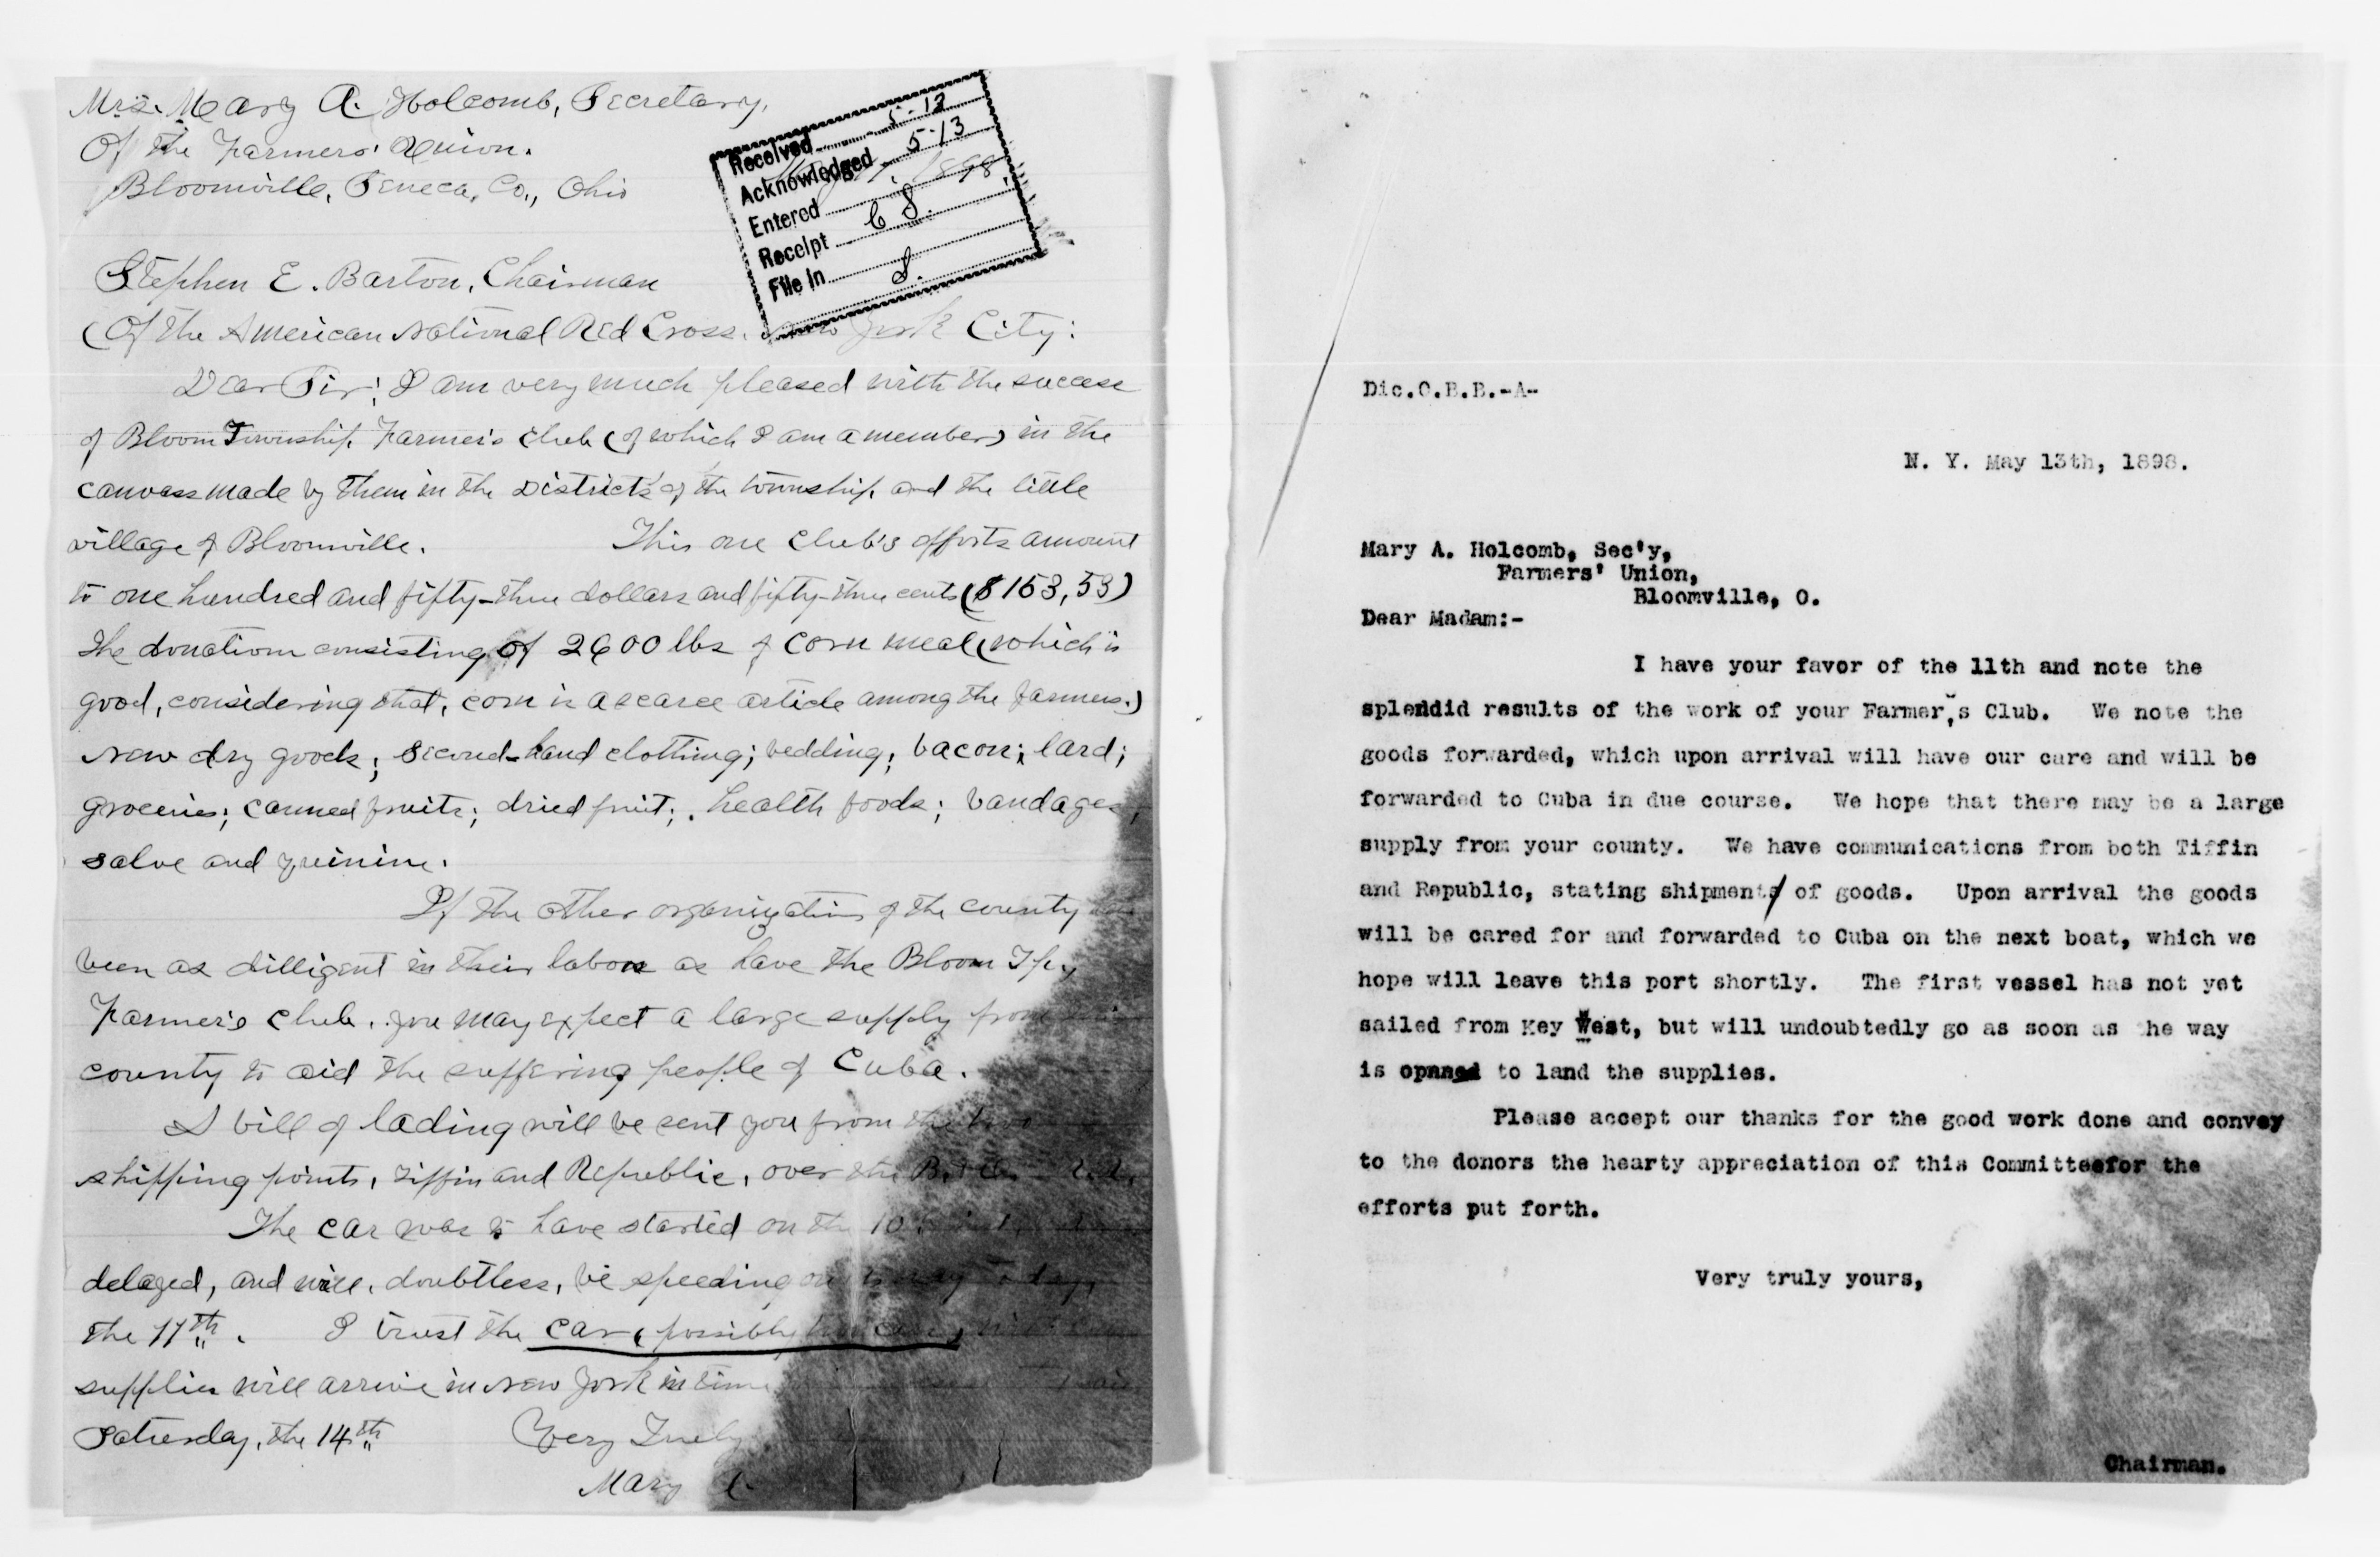 Mrs. Mary A. Holcomb, Secretary,
Of the Farmers' Union.
Bloomville, Seneca, Co., Ohio
Received 5-12
Acknowledged 5-13
1898,
Entered
Receipt
File in
Stephen E. Barton, Chairman
(Of the American National Red Cross. New York City:
Dear Sir: I am very much pleased with the success
of Bloom Township Farmer's Club (of which I am a member) in the
canvass made by them in the Districts of the township and the little
village of Bloomville. This one Club's efforts amount
to one hundred and fifty-three dollars and fifty-three cents ($153,53)
The donation consisting of 2600 lbs of corn meal (which is
good, considering that, corn is a scarce article among the farmers.)
New dry goods; second-hand clothing; bedding; bacon; lard;
groceries; canned fruits; dried fruit; health foods; bandages;
salve and quinine.
If the other organizations of the county
been as dilligent in their labors as have the Bloom Tp.
Farmer's Club, you may expect a large supply from
county to aid the suffering people of Cuba.
A bill of lading will be sent you from the two
shipping points, Tiffin and Republic, over the B.
The car was to have started on the 10
delayed, and will, doubtless, be speeding on its way to day,
the 11th. I trust the car, (possibly two cars)
supplies will arrive in New York in time
Saturday, the 14th Very Truly
Mary A.
Dic.O.B.B.-A-
N. Y. May 13th, 1898.
Mary A. Holcomb, Sec'y,
Farmers' Union,
Bloomville, O.
Dear Madam:-
I have your favor of the 11th and note the
splendid results of the work of your Farmer's Club. We note the
goods forwarded, which upon arrival will have our care and will be
forwarded to Cuba in due course. We hope that there may be a large
supply from your county. We have communications from both Tiffin
and Republic, stating shipment of goods. Upon arrival the goods
will be cared for and forwarded to Cuba on the next boat, which we
hope will leave this port shortly. The first vessel has not yet
sailed from Key West, but will undoubtedly go as soon as he way
is opnned to land the supplies.
Please accept our thanks for the good work done and convey
to the donors the hearty appreciation of this Committeefor the
efforts put forth.
Very truly yours,
Chairman.